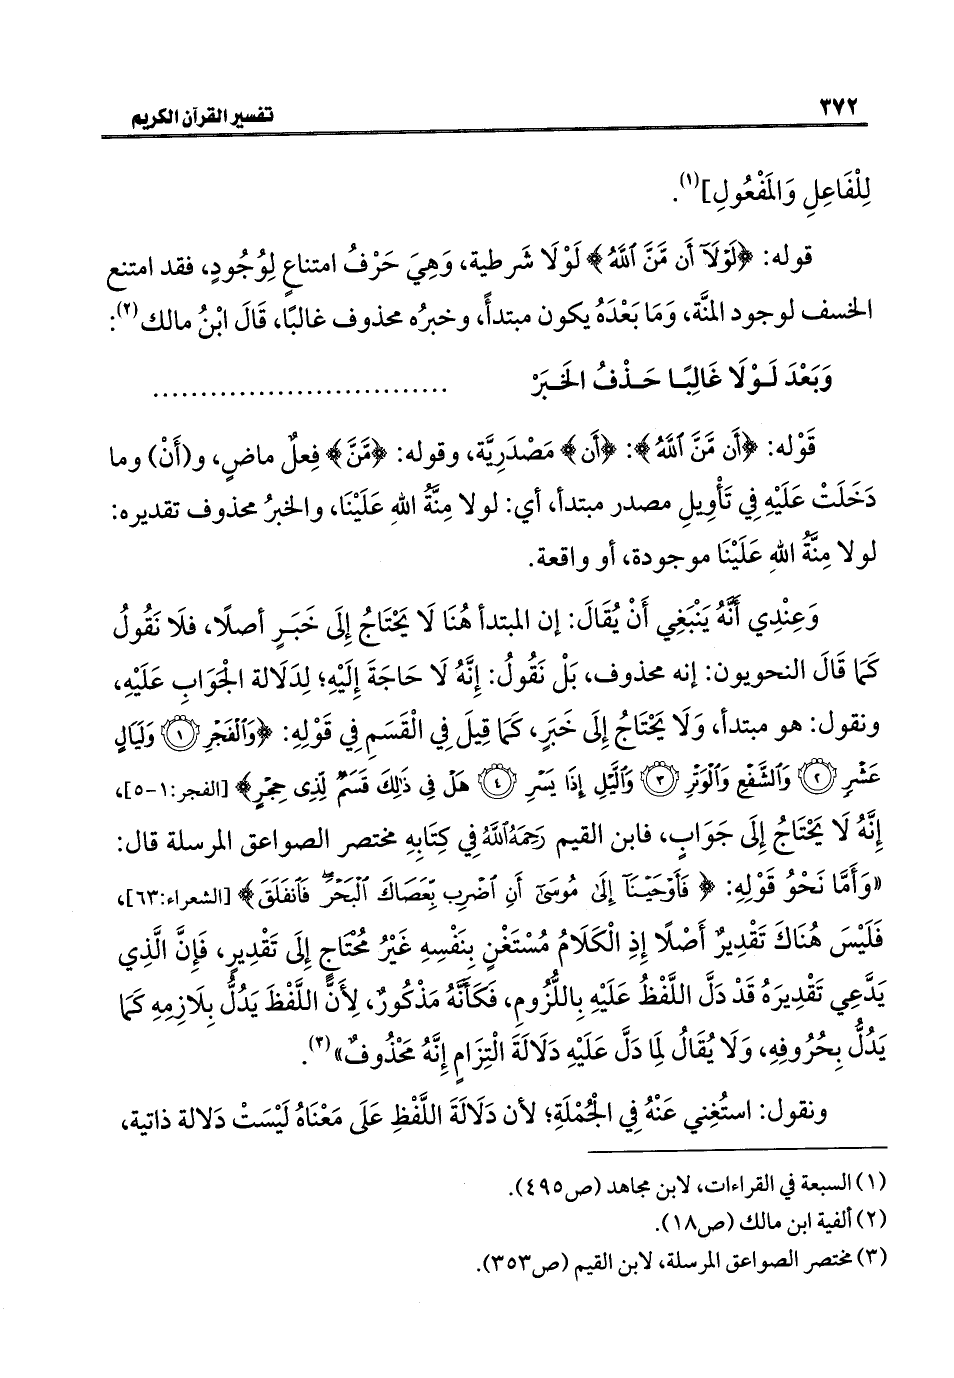 ٣٧٢
تفسير القرآن الكريم
لِلْفَاعِلِ وَالمَفْعُولِ](١).
قوله: ﴿لَوْلَآ أَن مَّنَّ ٱللَّهُ﴾ لَوْلَا شرطية، وَهِيَ حَرْفُ امتناعٍ لِوُجُودٍ، فقد امتنع
الخسف لوجود المنَّة، وَمَا بَعْدَهُ يكون مبتدأً، وخبرُه محذوف غالبًا، قَالَ ابْنُ مالك(٢):
وَبَعْدَ لَـوْلَا غَالِبًـا حَـذْفُ الخَـبَرْ ...............................
قَوْله: ﴿أَن مَّنَّ ٱللَّهُ﴾: ﴿أَن﴾ مَصْدَرِيَّة، وقوله: ﴿مَّنَّ﴾ فِعلٌ ماضٍ، و(أَنْ) وما
دَخَلَتْ عَلَيْهِ فِي تَأْوِيلِ مصدر مبتدأ، أي: لولا مِنَّةُ اللهِ عَلَيْنَا، والخبرُ محذوف تقديره:
لولا مِنَّةُ اللهِ عَلَيْنَا موجودة، أو واقعة.
وَعِنْدِي أَنَّهُ يَنْبَغِي أَنْ يُقَالَ: إن المبتدأ هُنَا لَا يَحْتَاجُ إِلَى خَبَـرٍ أصلًا، فلا نَقُولُ
كَمَا قَالَ النحويون: إنه محذوف، بَلْ نَقُولُ: إِنَّهُ لَا حَاجَةَ إِلَيْهِ؛ لِدَلَالة الجَوَابِ عَلَيْهِ،
ونقول: هو مبتدأ، وَلَا يَحْتَاجُ إِلَى خَبَرٍ، كَمَا قِيلَ فِي الْقَسَمِ فِي قَوْلِهِ: ﴿وَٱلْفَجْرِ ۝١ وَلَيَالٍ
عَشْرٍ ۝٢ وَٱلشَّفْعِ وَٱلْوَتْرِ ۝٣ وَٱلَّيْلِ إِذَا يَسْرِ ۝٤ هَلْ فِى ذَٰلِكَ قَسَمٌ لِّذِى حِجْرٍ﴾ [الفجر:١-٥]،
إِنَّهُ لَا يَحْتَاجُ إِلَى جَوَابٍ، فابن القيم رَحِمَهُ ٱللَّهُ فِي كِتَابِهِ مختصر الصواعق المرسلة قال:
«وَأَمَّا نَحْوُ قَوْلِهِ: ﴿فَأَوْحَيْنَآ إِلَىٰ مُوسَىٰٓ أَنِ ٱضْرِب بِّعَصَاكَ ٱلْبَحْرَ ۖ فَٱنفَلَقَ﴾ [الشعراء:٦٣]،
فَلَيْسَ هُنَاكَ تَقْدِيرٌ أَصْلًا إِذِ الْكَلَامُ مُسْتَغْنٍ بِنَفْسِهِ غَيْرُ مُحْتَاجٍ إِلَى تَقْدِيرٍ، فَإِنَّ الَّذِي
يَدَّعِي تَقْدِيرَهُ قَدْ دَلَّ اللَّفْظُ عَلَيْهِ بِاللُّزُومِ، فَكَأَنَّهُ مَذْكُورٌ، لِأَنَّ اللَّفْظَ يَدُلُّ بِلَازِمِهِ كَمَا
يَدُلُّ بِحُرُوفِهِ، وَلَا يُقَالُ لِمَا دَلَّ عَلَيْهِ دَلَالَةَ الْتِزَامٍ إِنَّهُ مَحْذُوفٌ»(٣).
ونقول: استُغِني عَنْهُ فِي الجُمْلَةِ؛ لأن دَلَالَةَ اللَّفْظِ عَلَى مَعْنَاهُ لَيْسَتْ دَلالة ذاتية،
(١) السبعة في القراءات، لابن مجاهد (ص٤٩٥).
(٢) ألفية ابن مالك (ص١٨).
(٣) مختصر الصواعق المرسلة، لابن القيم (ص٣٥٣).